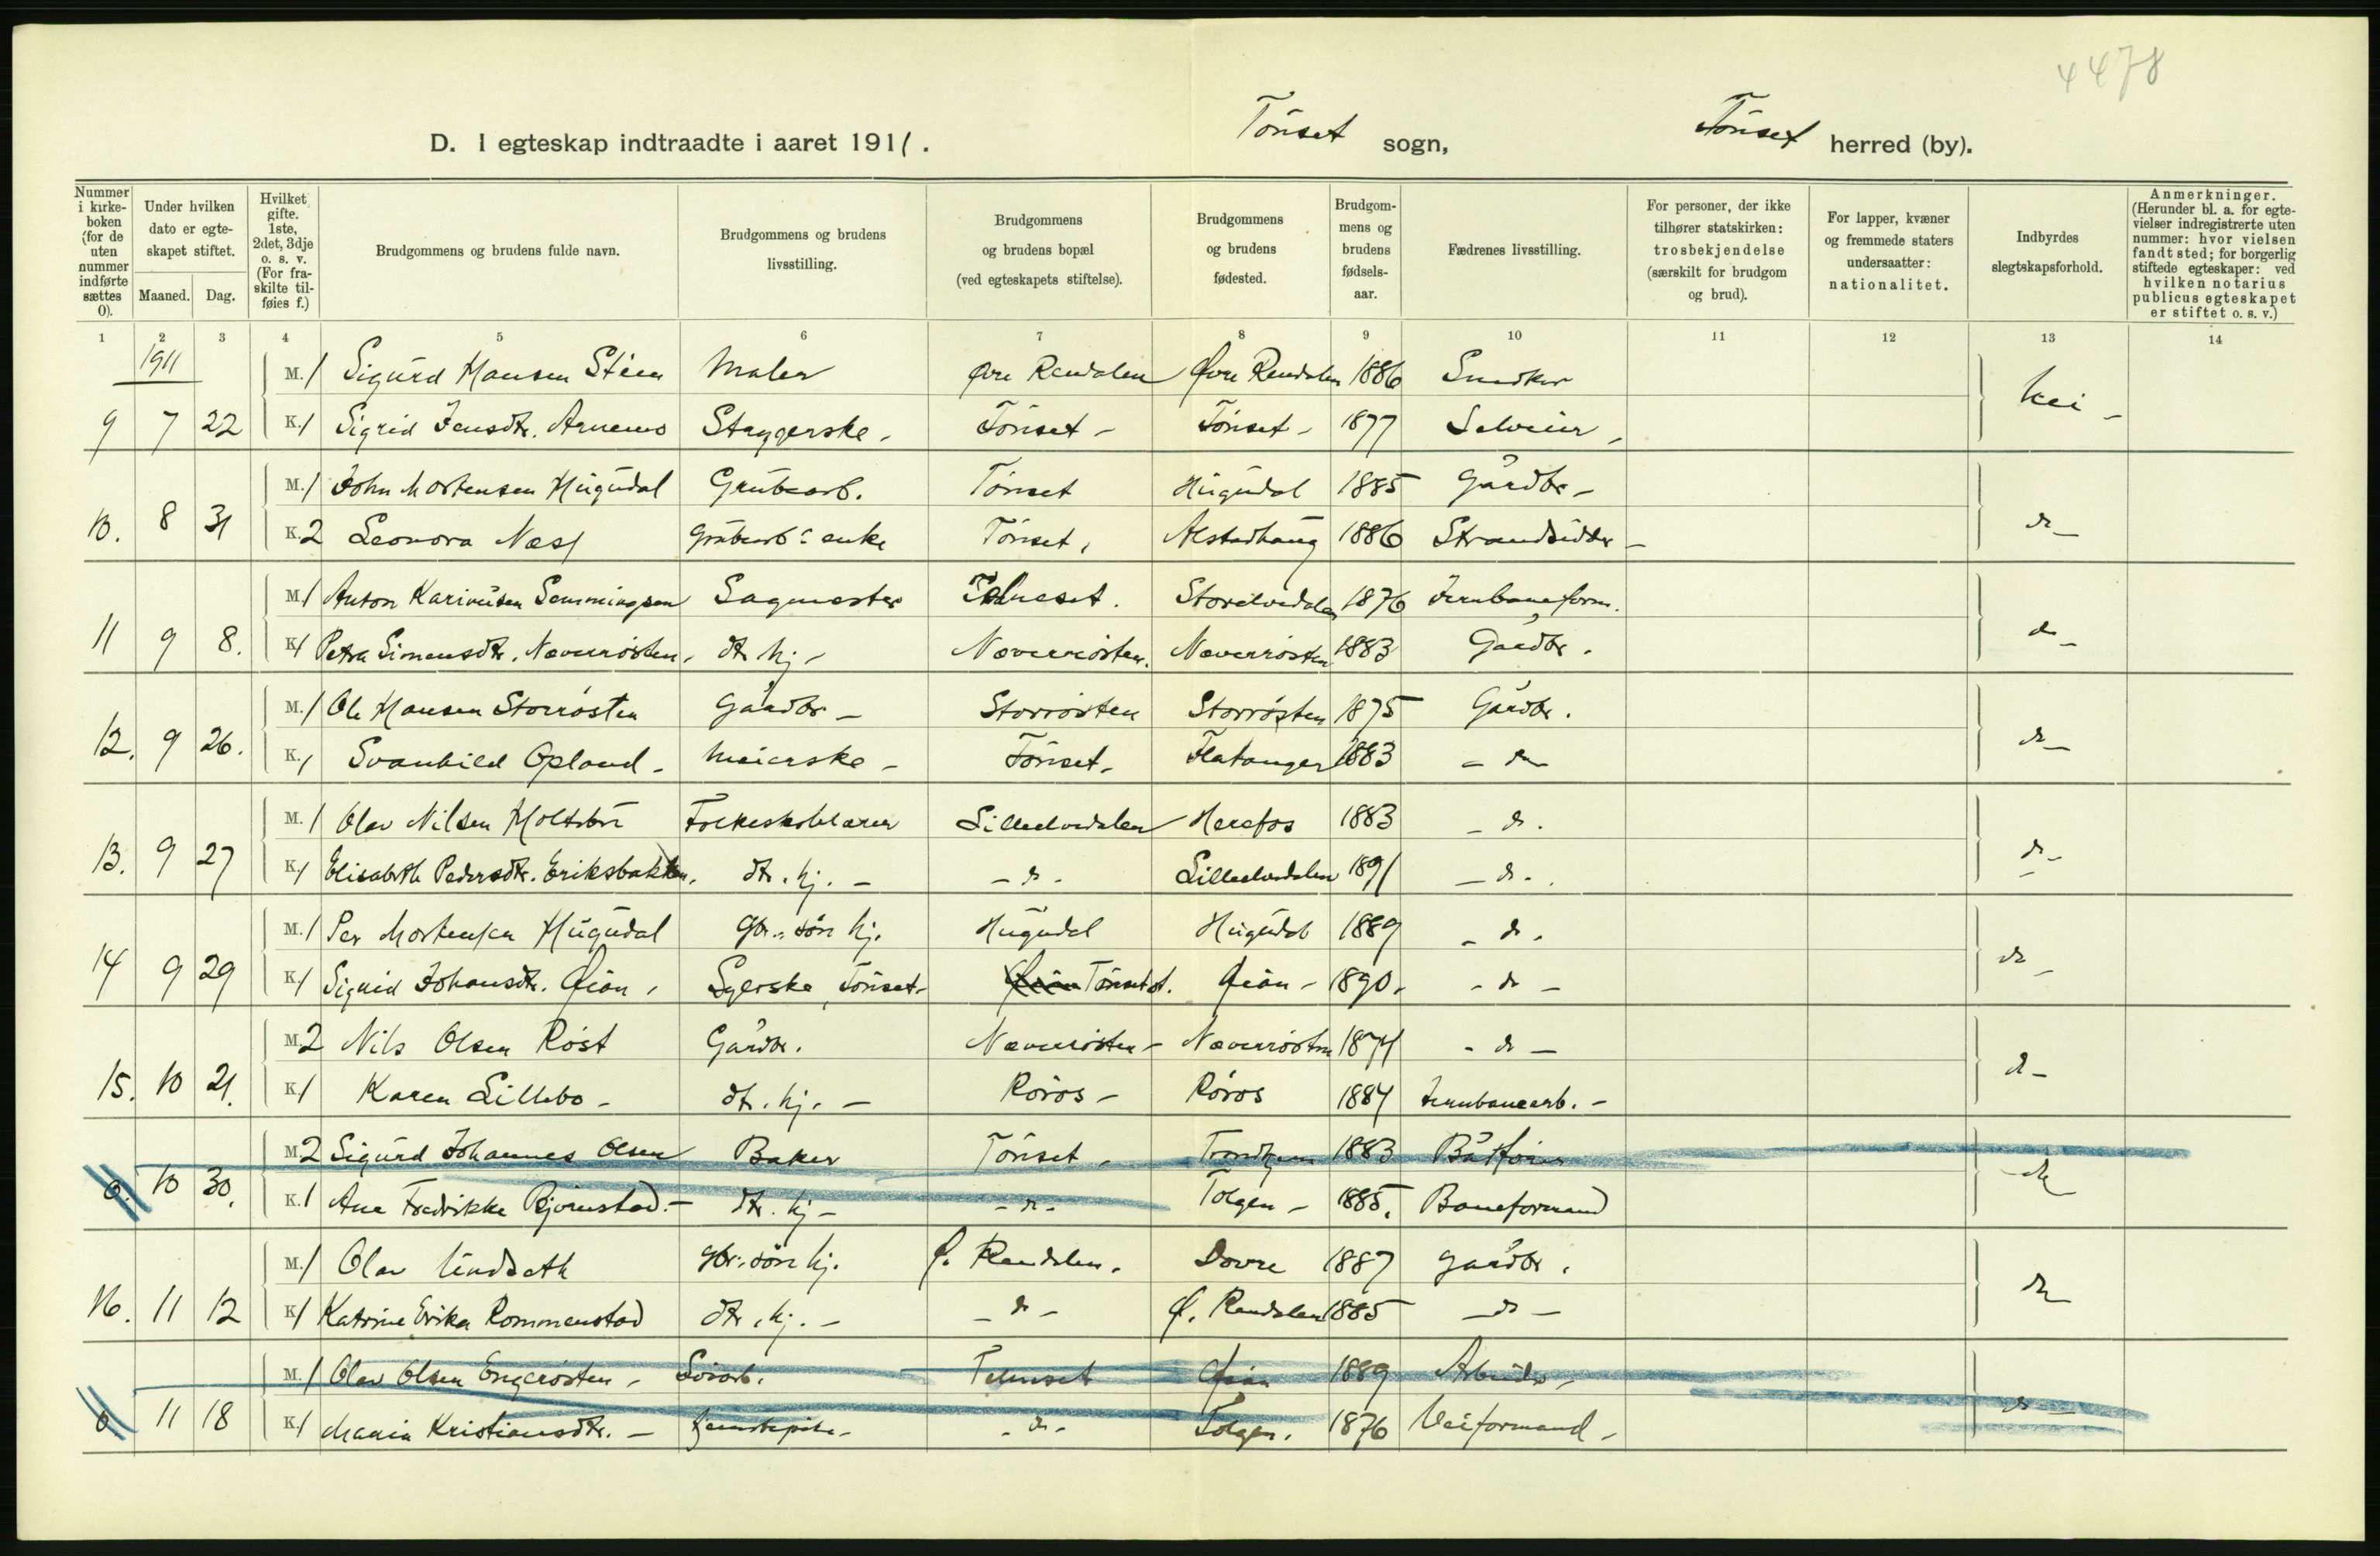 4478
D. I egteskap indtraadte i aaret 1911. Tönset sogn, Tönset herred (by).
Nummer i kirke-boken (for de uten nummer indførte sættes 0).
Under hvilken dato er egte-skapet stiftet.
Maaned. Dag.
Hvilket gifte. 1ste, 2det, 3dje o. s. v. (For fra-skilte til-føies f.)
Brudgommens og brudens fulde navn.
Brudgommens og brudens livsstilling.
Brudgommens og brudens bopæl (ved egteskapets stiftelse).
Brudgommens og brudens fødested.
Brudgom-mens og brudens fødsels-aar.
Fædrenes livsstilling.
For personer, der ikke tilhører statskirken: trosbekjendelse (særskilt for brudgom og brud).
For lapper, kvæner og fremmede staters undersaatter: nationalitet.
Indbyrdes slegtskapsforhold.
Anmerkninger. (Herunder bl. a. for egte-vielser indregistrerte uten nummer: hvor vielsen fandt sted; for borgerlig stiftede egteskaper: ved hvilken notarius publicus egteskapet er stiftet o. s. v.)
1 2 3 4 5 6 7 8 9 10 11 12 13 14
1911
M. 1 Sigurd Hansen Stien Maler Øvre Rendalen Øvre Rendalen 1886 Snedker
9 7 22 K. 1 Sigrid Jensdtr. Arnemo Stryggerske - Tönset - Tönset - 1877 Selveier -
M. 1 John Mortensen Hugudal Grubearb. Tönset Hugudal 1885 Gårdbr -
10. 8 31 K. 2 Leonora Næss Grubearb: enke Tönset, Alstadhaug 1886 Strandsidder -
M. 1 Anton Kariniusen Semmingsen Sagmester Telneset. Storelvedalen 1876 Jernbaneform.
11 9 8. K. 1 Petra Simensdtr. Næverrösten. dtr. hj - Næverrösten. Næverrösten 1883 Gårdbr.
M. 1 Ole Hansen Storrøsten Gårdbr - Storrösten Storrøsten 1875 Gårdbr.
12. 9 26. K. 1 Svanhild Opland - Meierske - Tönset - Flatanger 1883 - do -
M. 1 Olav Nilsen Holtsbru Folkeskolelærer Lilleelvedalen Herefos 1883 - do.
13. 9 27 K. 1 Elisabeth Pedersdtr. Eriksbakken. dtr. hj. - - do - Lilleelvedalen 1891 - do -.
M. 1 Per Mortensen Hugudal Gbr.-sön hj. Hugudal Hugudal 1889 - do.
14 9 29 K. 1 Sigrid Johansdtr. Øian, Syerske, Tönset - Tönset st. Øian - 1890. - do -
M. 2 Nils Olsen Röst Gårdbr. Næverrösten - Næverrösten 1874 - do -
15. 10 21. K. 1 Karen Lillebo - dtr. hj. - Röros - Röros 1884 Jernbanearb. -
M. 2 Sigurd Johannes Olsen Baker Tönset - Trondhjem 1883 Båtfører
0. 10 30. K. 1 Ane Fredrikke Bjørnstad. - dtr. hj - - do - Tolgen - 1885. Baneformand
M. 1 Olav Lindseth Gbr: sön hj. Ø. Rendalen. Dovre 1887 Gårdbr.
16. 11 12 K. 1 Katrine Erika Rommenstad dtr. hj. - - do - Ø. Rendalen 1885 - do -
M. 1 Olav Olsen Engerösten - Telneset Øian 1889 Arbeider -
0 11 18 K. 1 Maria Kristiansdtr. - - do - Tolgen. 1876 Veiformand -